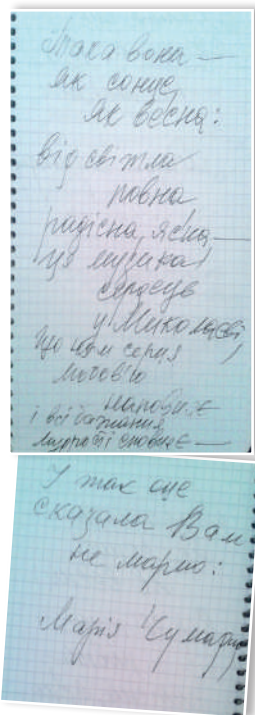 Така вона —
як сонце,
як весна:
від світла
повна
радісна, ясна —
ця музика
сердець
у Миколаєві,
що нам серця
любов'ю
наповнює
і всі бажання
мудрості сповнює —
І так оце
сказала Вам
не марно:
Марія Чумарна